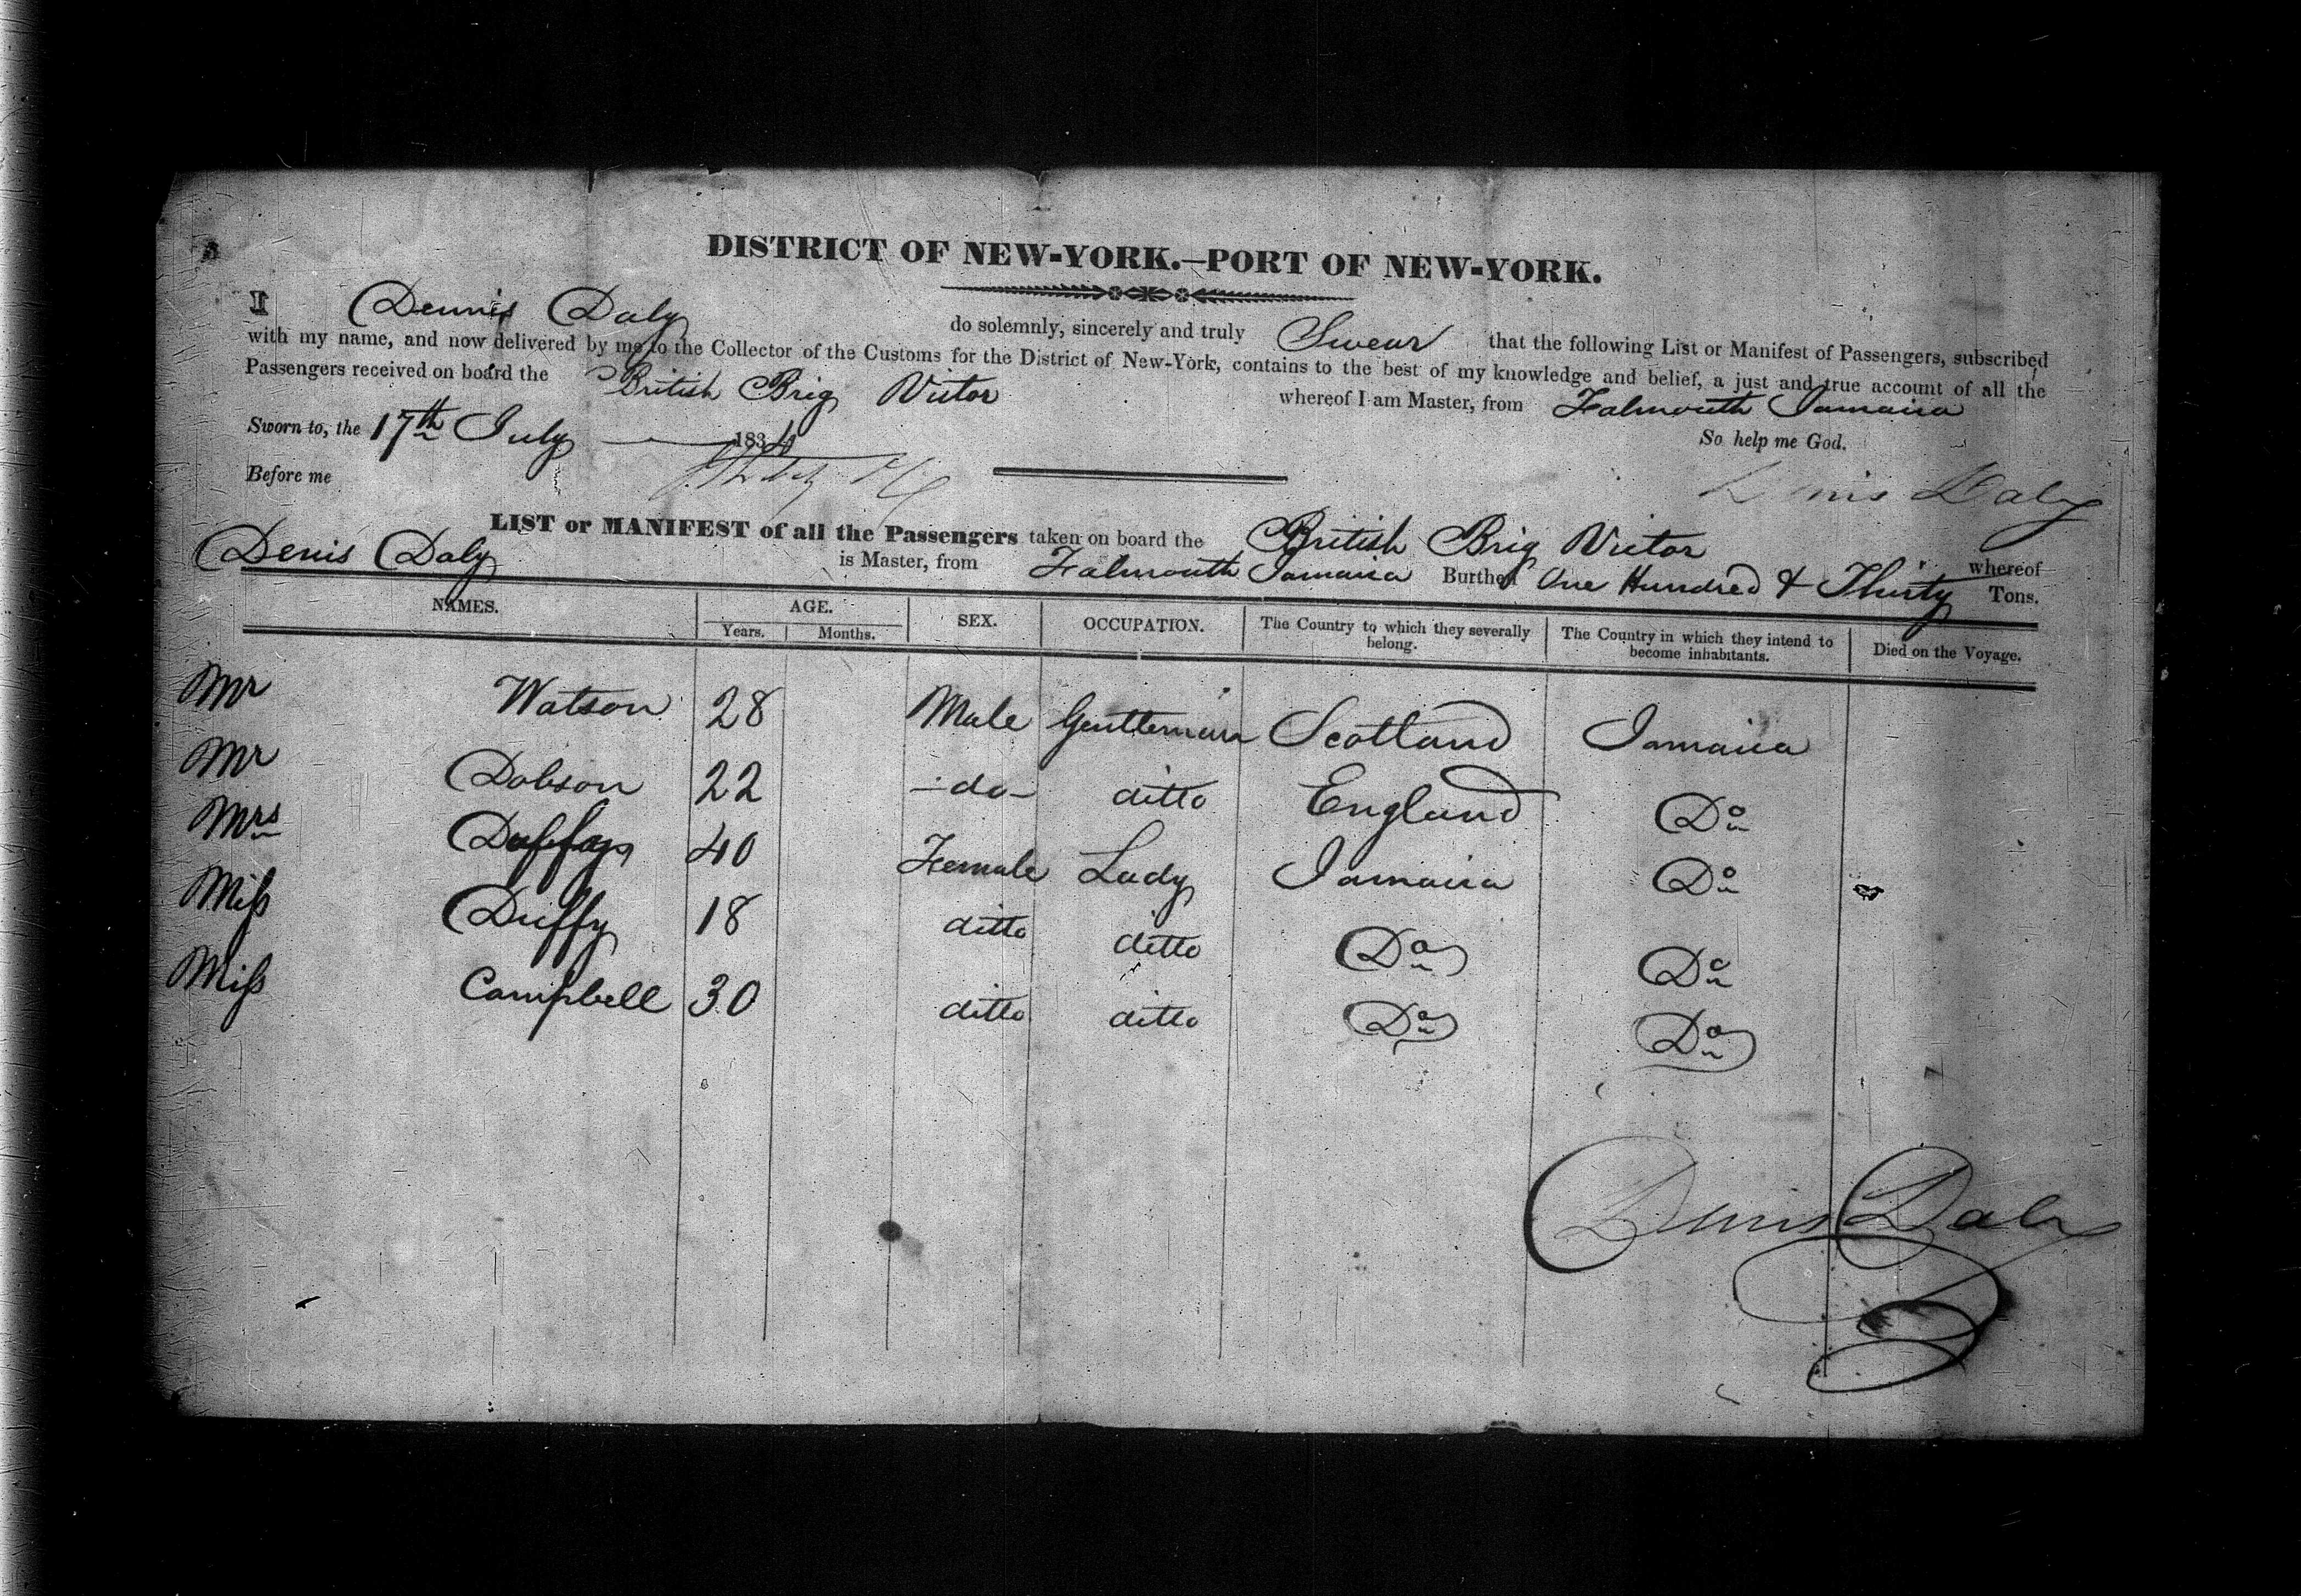 DISTRICT OF NEW-YORK.—PORT OF NEW-YORK.
I Dennis Daly do solemnly, sincerely and truly Swear that the following List or Manifest of Passengers, subscribed
with my name, and now delivered by me to the Collector of the Customs for the District of New-York, contains to the best of my knowledge and belief, a just and true account of all the
Passengers received on board the British Brig Victor whereof I am Master, from Falmouth Jamaica
Sworn to, the 17th July 1834 So help me God.
Before me Denis Daly
LIST or MANIFEST of all the Passengers taken on board the British Brig Victor whereof
Denis Daly is Master, from Falmouth Jamaica Burthen One Hundred & Thirty Tons.
NAMES. AGE. SEX. OCCUPATION. The Country to which they severally belong. The Country in which they intend to become inhabitants. Died on the Voyage.
Years. Months.
Mr Watson 28 Male Gentleman Scotland Jamaica
Mr Dobson 22 -do- ditto England Do
Mrs 40 Female Lady Jamaica Do
Miss Duffy 18 ditto ditto Do Do
Miss Campbell 30 ditto ditto Do Do
Denis Daly